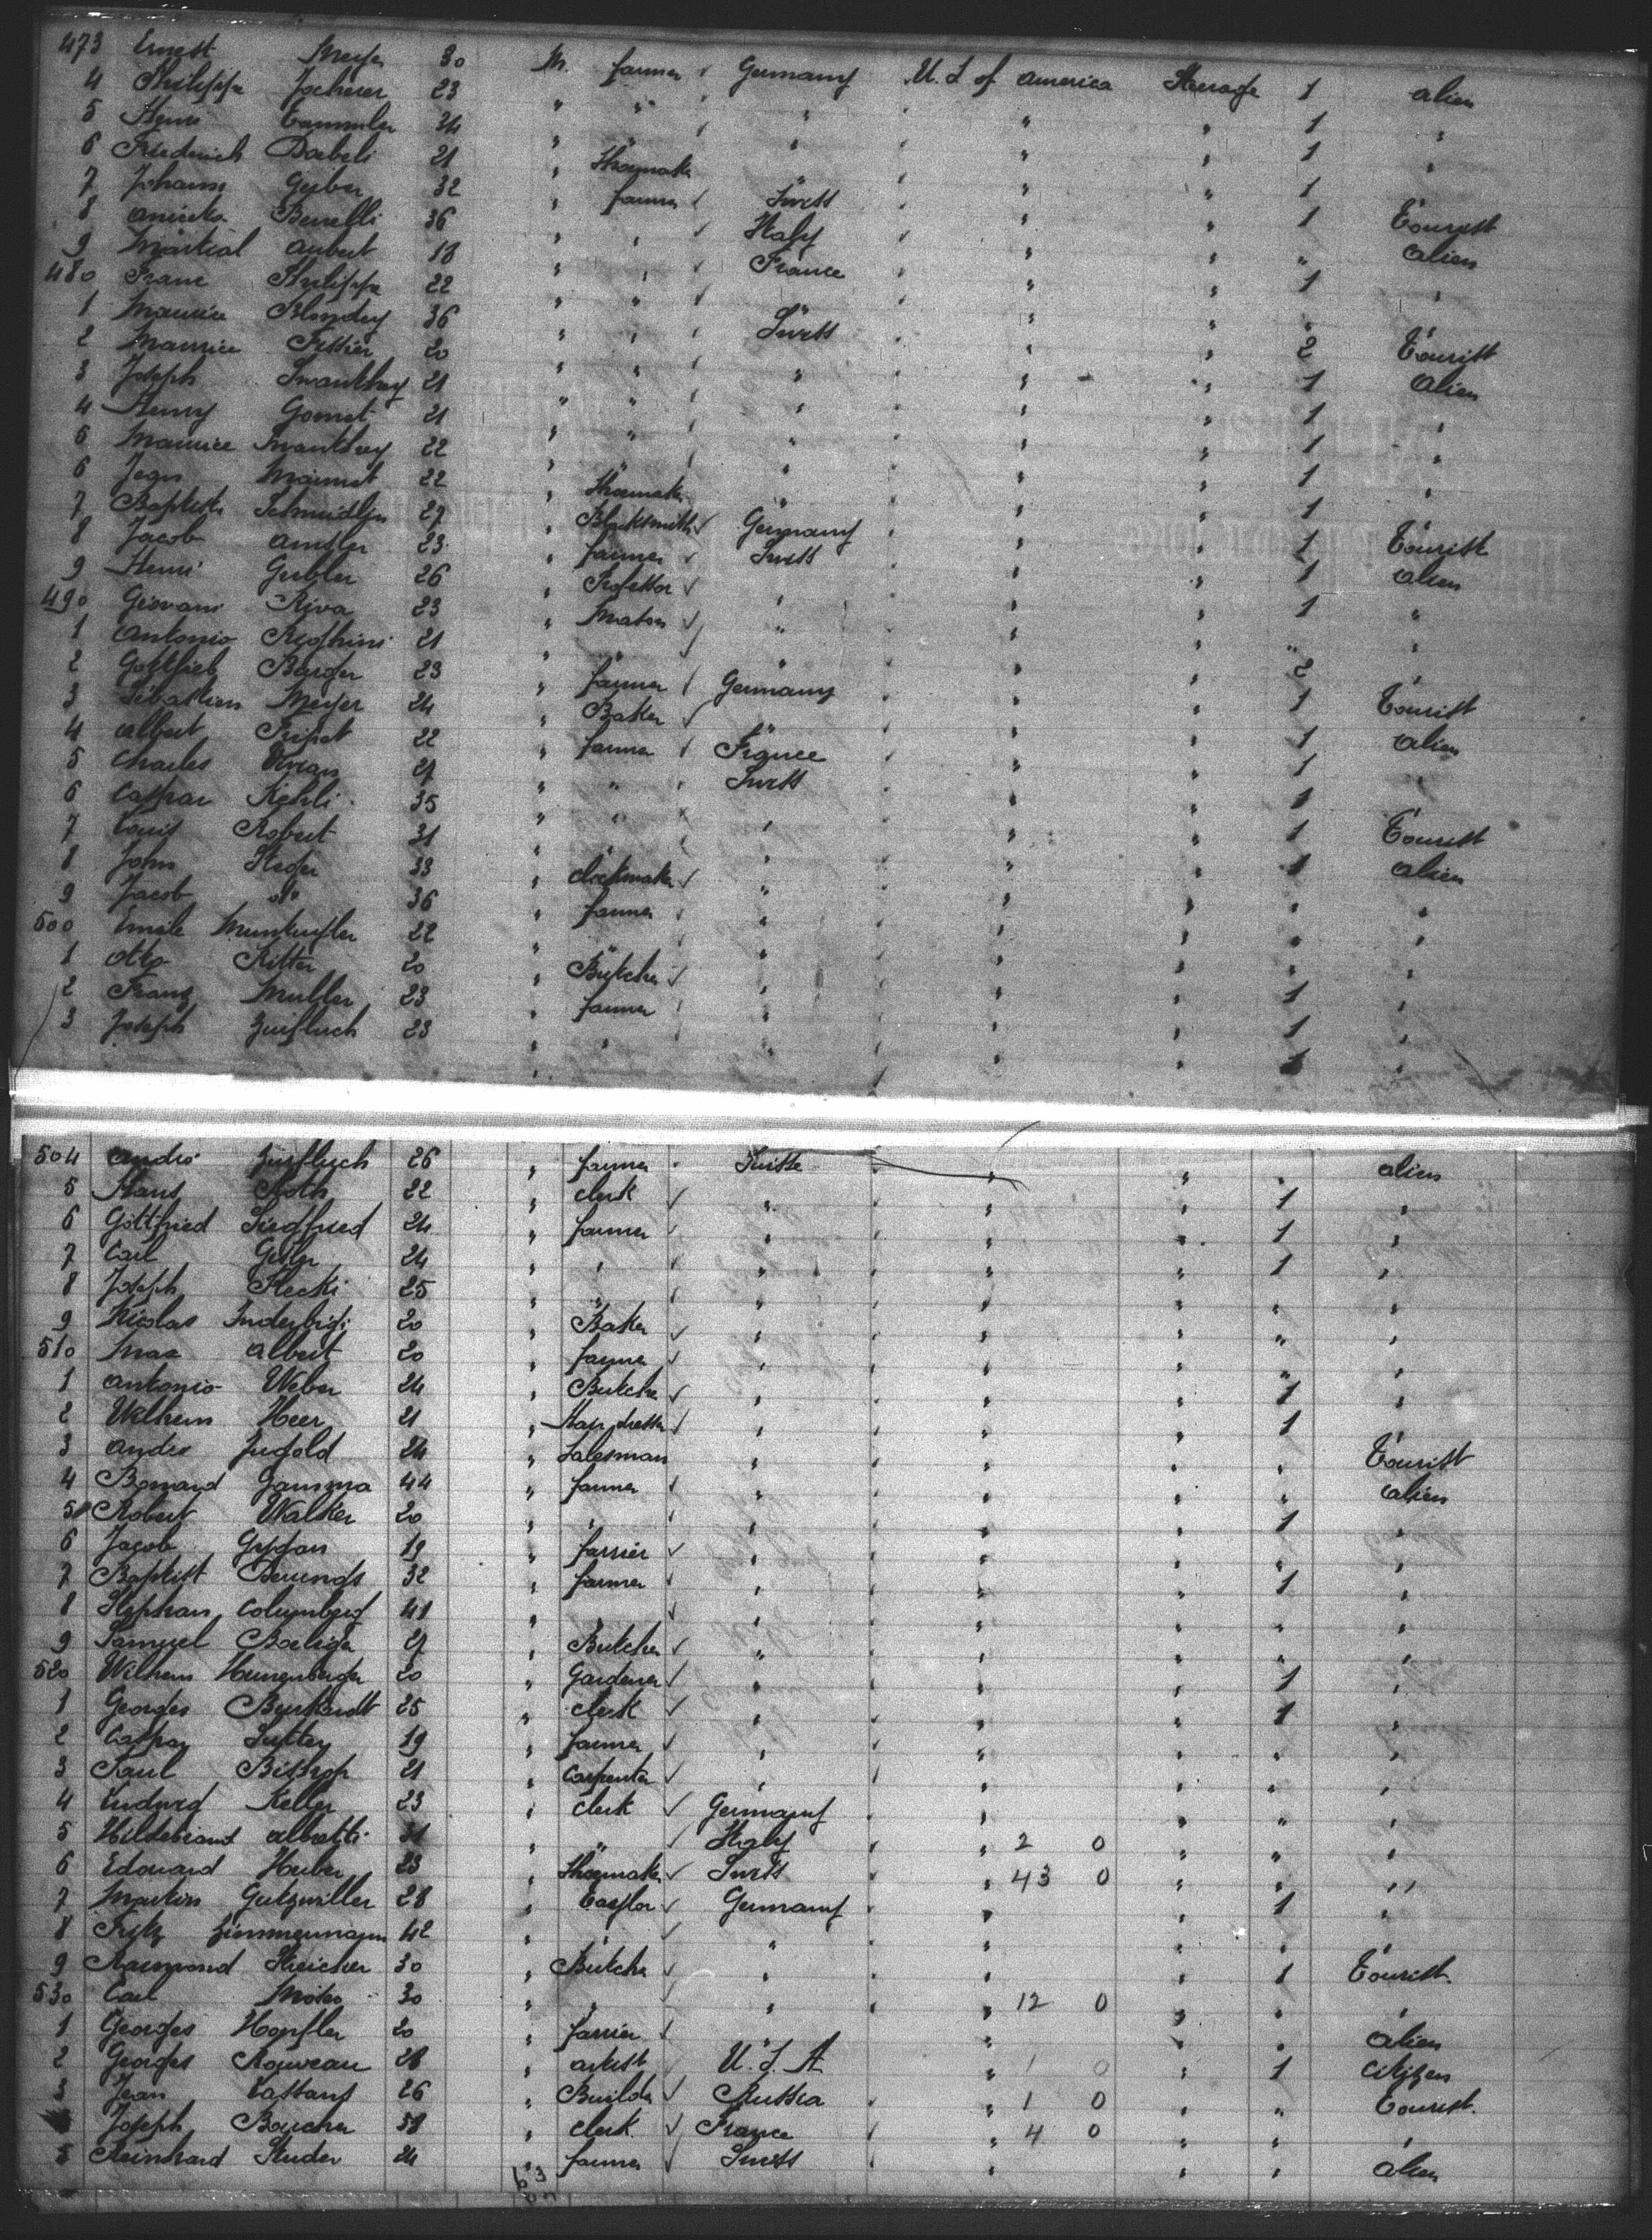 473 Ernest Meyer 30 M. farmer Germany U. S of America Steerage 1 alien
4 Philippe Jocherer 23 " " " " " 1 "
5 Henri 24 " " " " " 1 "
6 Friedrich Daebeli 21 " Shoemaker " " " 1 "
7 Johann Geiber 32 " farmer Swiss " " 1 Tourist
8 Benelli 36 " " Italy " " " alien
9 Martial Aubert 18 " " France " " 1 "
480 Franc Philippe 22 " " " " " " "
1 Maurice Blondey 36 " " Swiss " " 2 Tourist
2 Maurice Fessier 20 " " " " " 1 alien
3 Joseph 21 " " " " " 1 "
4 Henry Gomet 21 " " " " " 1 "
5 Maurice 22 " " " " " 1 "
6 Jean 22 " Shoemaker " " " 1 "
7 Baptiste Schmidlin 27 " Blacksmith Germany " " 1 Tourist
8 Jacob Amsler 23 " farmer Swiss " " 1 alien
9 Henri Gubler 26 " Professor " " " 1 "
490 Giovani Riva 23 " Mason " " " " "
1 Antonio 21 " " " " " 2 "
2 Gottlieb Berger 23 " farmer Germany " " 1 Tourist
3 Sebastien Meyer 24 " Baker " " " 1 alien
4 Albert Tripet 22 " farmer France " " 1 "
5 Charles 27 " " Swiss " " 1 "
6 Caspar Kehrli 35 " " " " " 1 Tourist
7 Louis Robert 31 " clockmaker " " " 1 alien
8 John Steger 33 " farmer " " " " "
9 Jacob do 36 " " " " " " "
500 Emile 22 " Butcher " " " " "
1 Otto Ritter 20 " farmer " " " 1 "
2 Franz Muller 23 " " " " " 1 "
3 Joseph Zurfluch 23 " " " " " 1 "
504 André Zurfluch 26 " farmer Swiss " " " alien
5 Hans Roth 22 " clerk " " " 1 "
6 Gottfried Siegfried 24 " farmer " " " 1 "
7 Carl 24 " " " " " 1 "
8 Joseph Flecki 25 " " " " " " "
9 Nicolas Inderbizi 20 " Baker " " " " "
510 Max Albert 20 " farmer " " " " "
1 Antonio Weber 24 " Butcher " " " 1 "
2 Wilhem Heer 21 " Hairdresser " " " 1 "
3 André Jugold 24 " Salesman " " " " Tourist
4 Bernard Gamma 44 " farmer " " " " alien
5 Robert Walker 20 " " " " " 1 "
6 Jacob 19 " farrier " " " " "
7 Baptist Derungs 32 " farmer " " " 1 "
8 Stephan Columberg 41 " " " " " " "
9 Samuel 27 " Butcher " " " " "
520 Wilhem Hunenberger 20 " Gardener " " " 1 "
1 Georges Burkardt 25 " clerk " " " 1 "
2 Caspar Suttey 19 " farmer " " " " "
3 Paul Bishop 21 " Carpenter " " " " "
4 Ludwig Keller 23 " clerk Germany " " " "
5 Hildebrand Albretti 31 " " Italy " 2 0 " " "
6 Edouard Huber 23 " Shoemaker Swiss " 43 0 " " "
7 Martin Gutzwiller 28 " Taylor Germany " " 1 "
8 Fritz Zimmermann 42 " " " " " " "
9 Raimond Streicher 30 " Butcher " " " 1 Tourist
530 Carl 30 " " " " 12 0 " " "
1 Georges Hopfler 20 " farrier " " " " alien
2 Georges Rouveau 28 " artist U. S. A " 1 0 " 1 citizen
3 Jean 26 " Builder Russia " 1 0 " " Tourist
Joseph Boucher 38 " clerk France " 4 0 " " "
5 Reinhard Studer 24 " farmer Swiss " " " alien